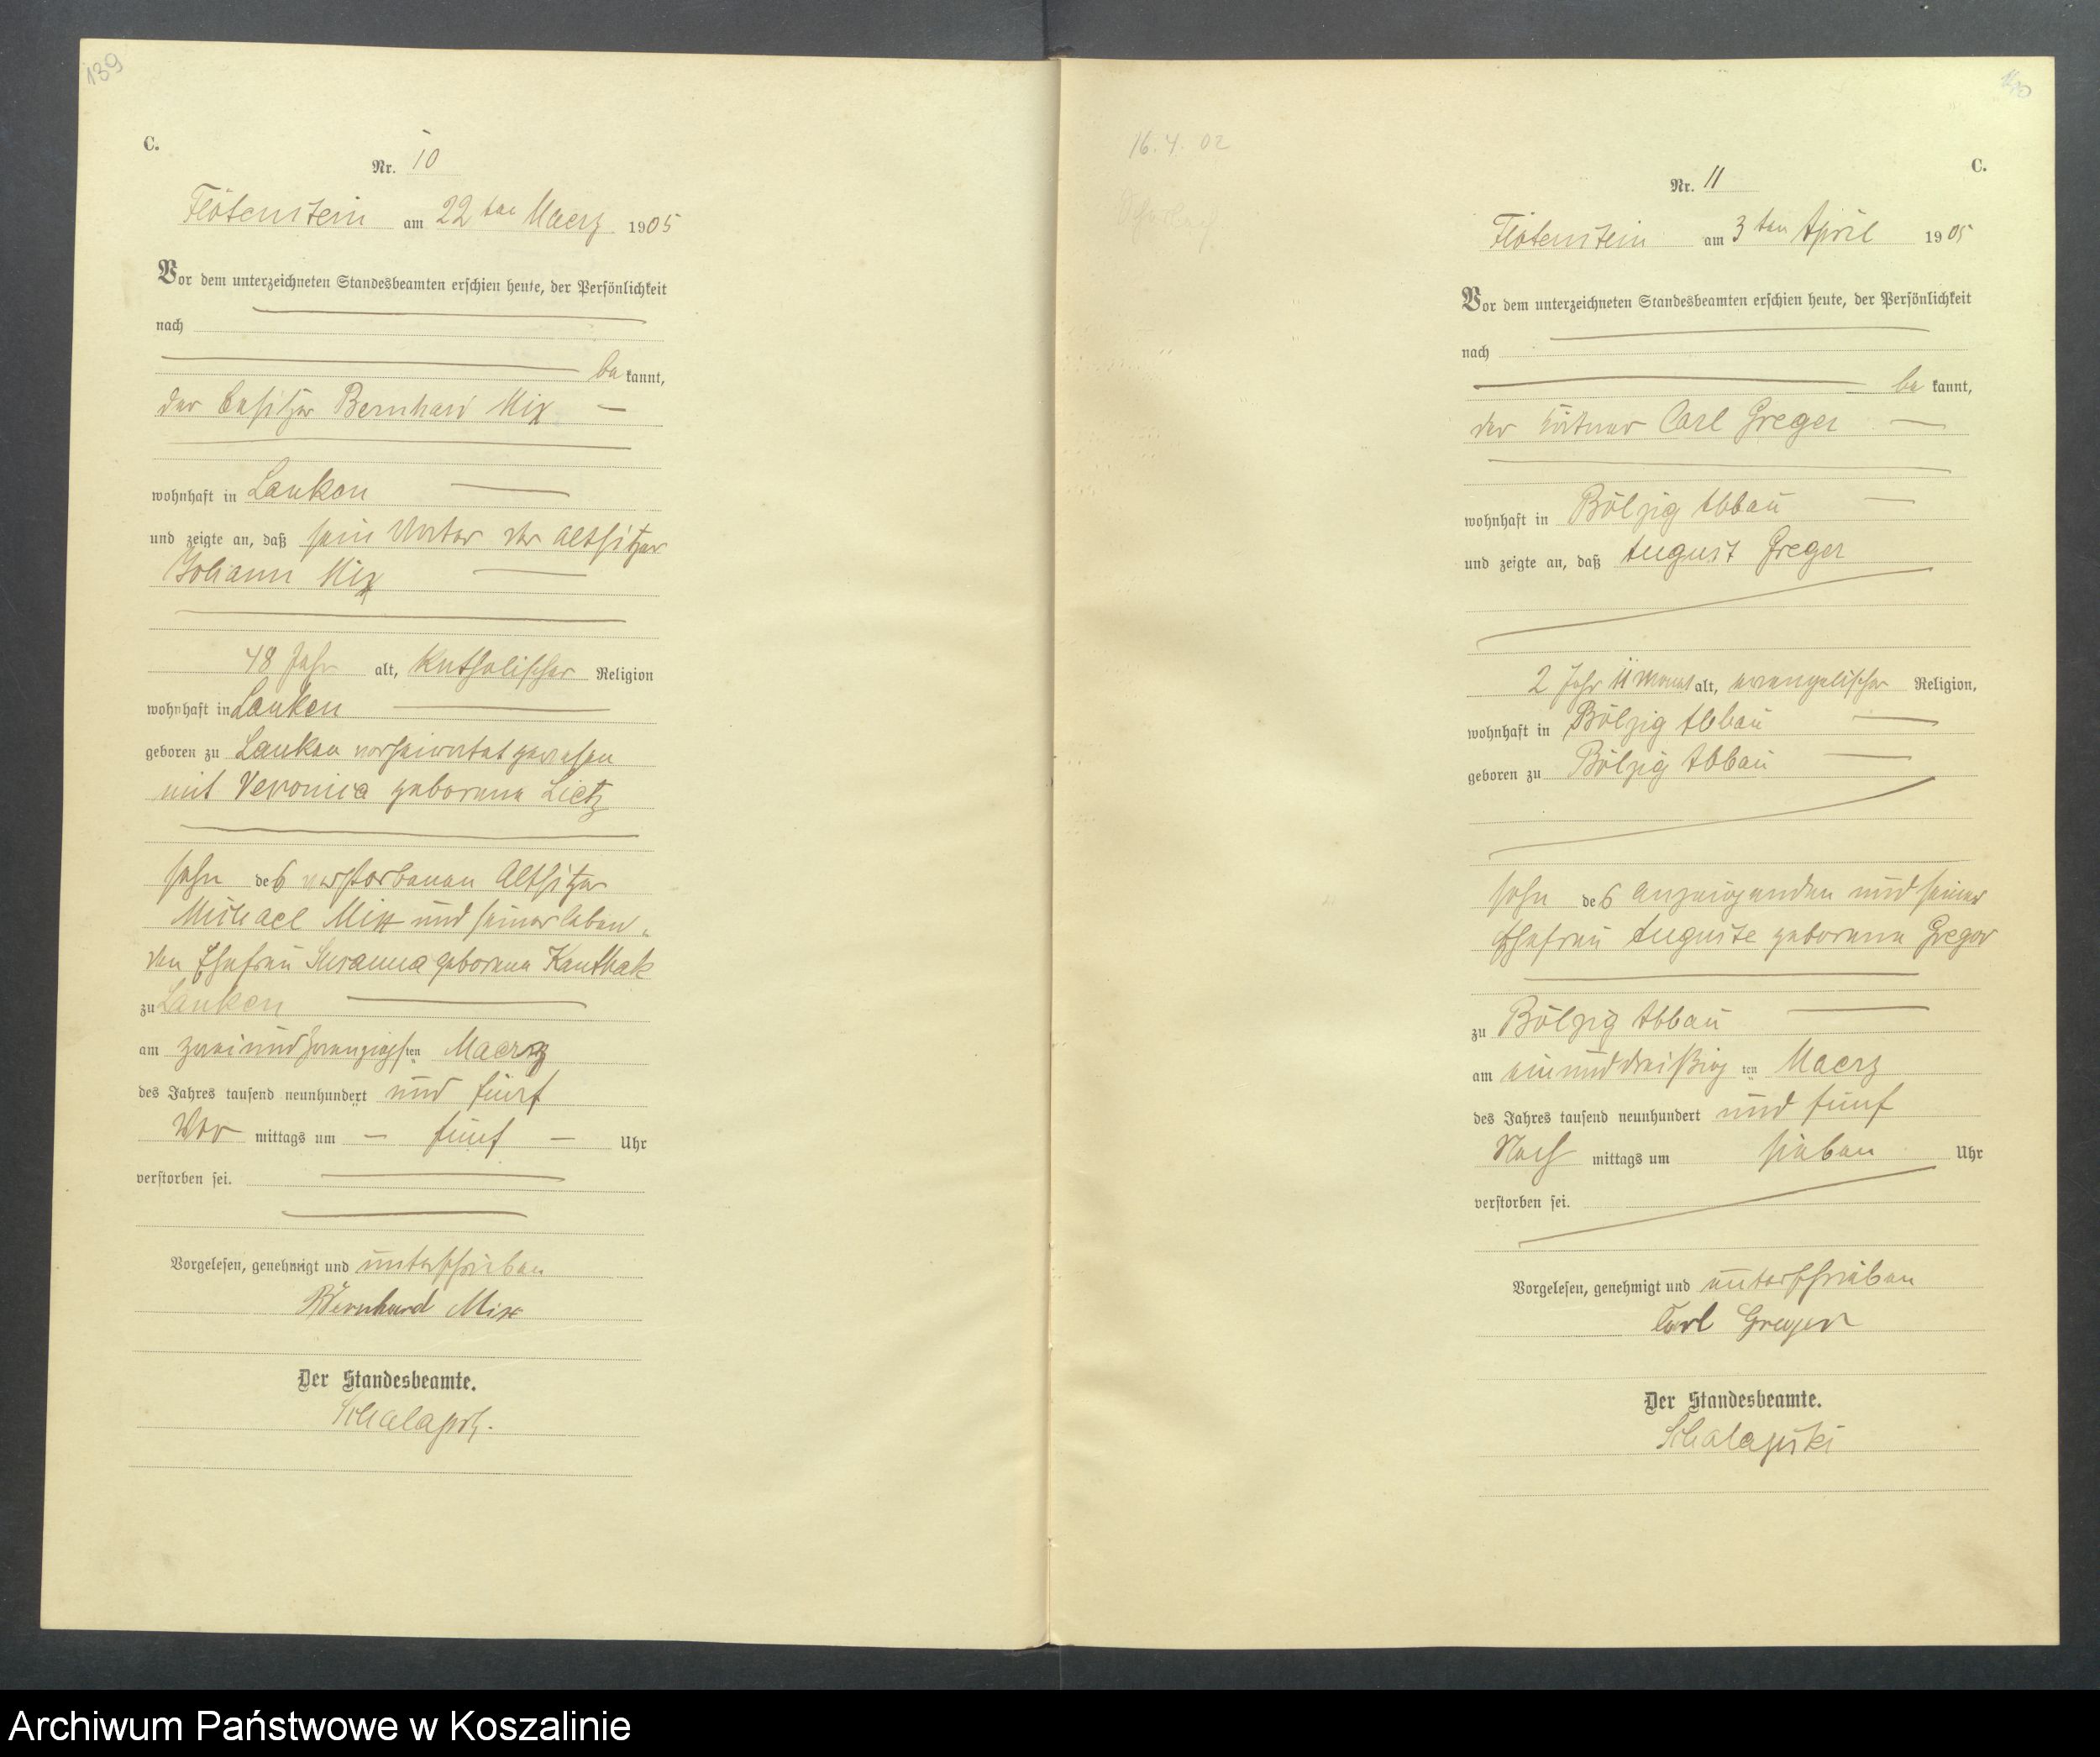 139
C.
Nr. 10
Flötenstein am 22 ten Maerz 1905
Vor dem unterzeichneten Standesbeamten erschien heute, der Persönlichkeit
nach
be kannt,
der Besitzer Bernhard Mix
wohnhaft in Lanken
und zeigte an, daß sein Vater der Altsitzer
Johann Mix
48 Jahr alt, katholischer Religion
wohnhaft in Lanken
geboren zu Lanken verheirathet gewesen
mit Veronica geborene Lietz
Sohn des verstorbenen Altsitzer
Michael Mix und seiner leben-
den Ehefrau Susanna geborene Kanthak
zu Lanken
am zweiundzwanzigsten Maerz
des Jahres tausend neunhundert und fünf
Vor mittags um fünf Uhr
verstorben sei.
Vorgelesen, genehmigt und unterschrieben
Bernhard Mix
Der Standesbeamte.
16. 4. 02
140
C.
Nr. 11
Flötenstein am 3 ten April 1905
Vor dem unterzeichneten Standesbeamten erschien heute, der Persönlichkeit
nach
be kannt,
der Carl Greger
wohnhaft in Bölzig Abbau
und zeigte an, daß August Greger
2 Jahr 11 Monat alt, evangelischer Religion,
wohnhaft in Bölzig Abbau
geboren zu Bölzig Abbau
Sohn des Anzeigenden und seiner
Ehefrau Auguste geborene Greger
zu Bölzig Abbau
am einunddreißig ten Maerz
des Jahres tausend neunhundert und fünf
Nach mittags um sieben Uhr
verstorben sei.
Vorgelesen, genehmigt und unterschrieben
Carl Greger
Der Standesbeamte.
Schalapski
Archiwum Państwowe w Koszalinie